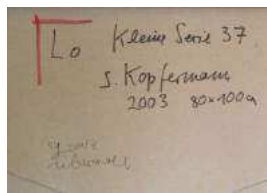 Lo Kleine Serie 37
S. Kopfermann
2003 80x100